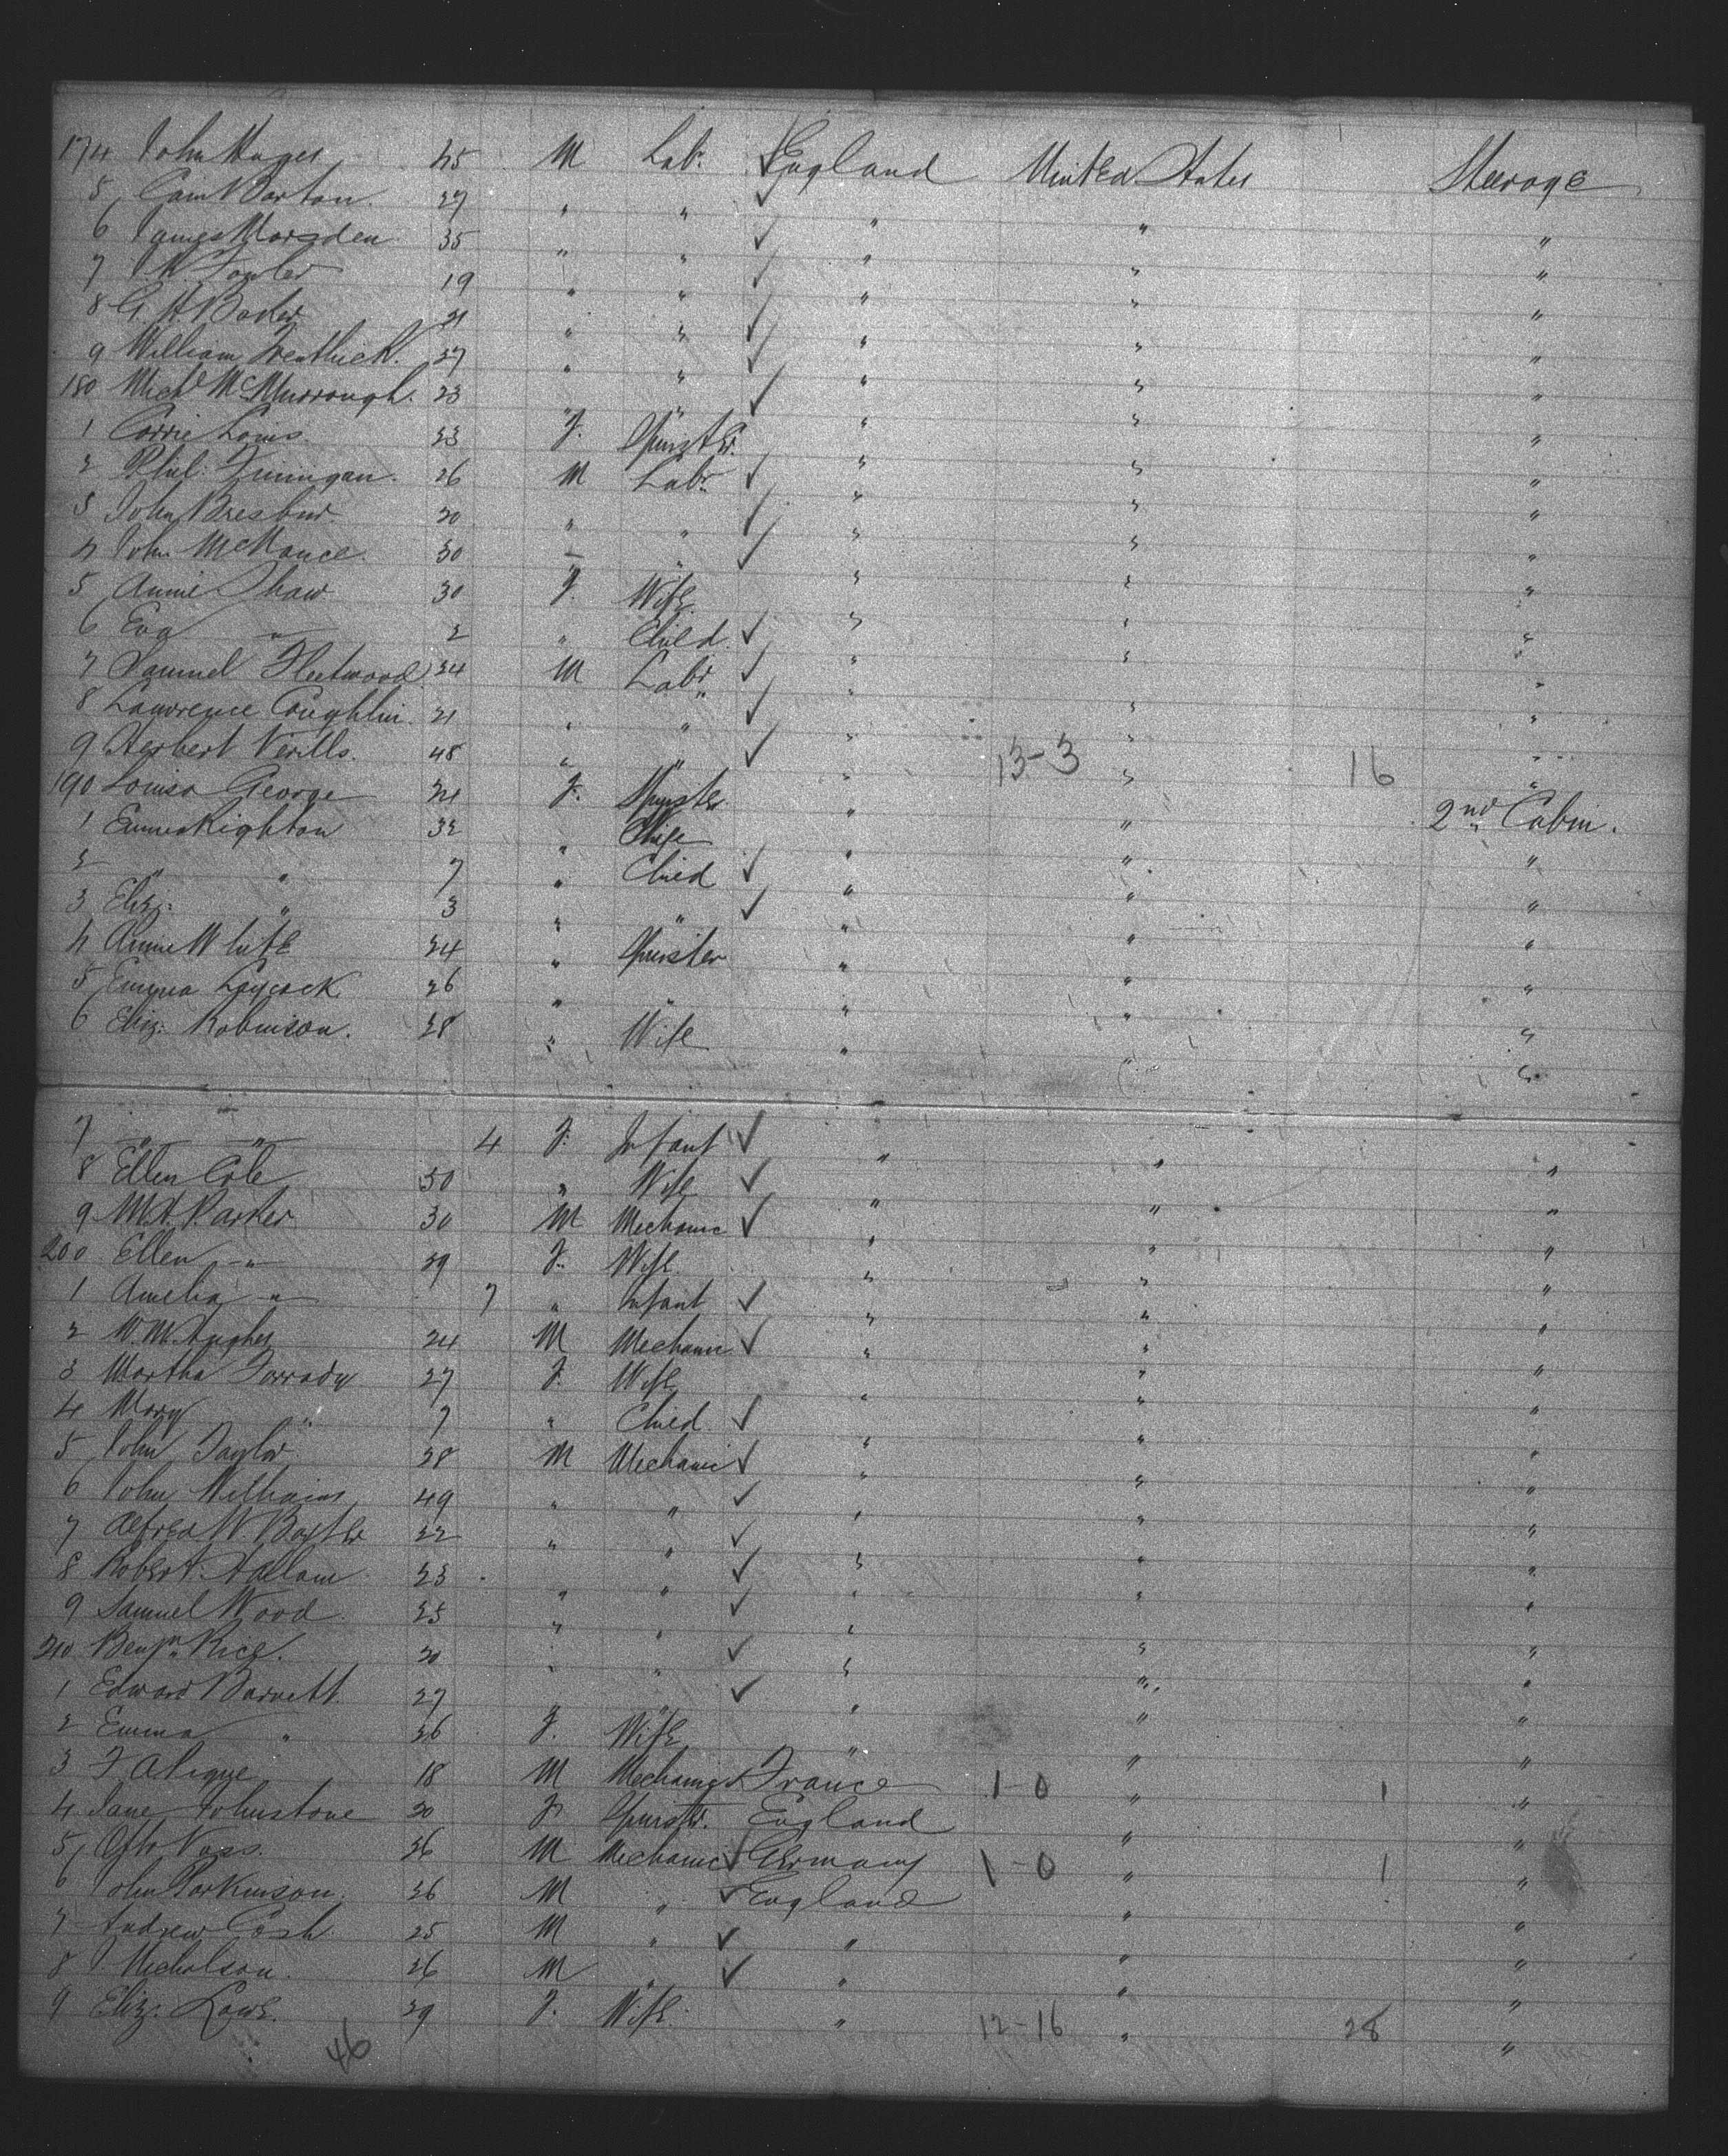 174 John 45 M Lab. England United States Steerage
5 Cain Barton. 27 " " " " "
6 James Marsden 35 " " " " "
7 Fowler 19 " " " " "
8 G. H. Baker 21 " " " " "
9 William 27 " " " " "
180 Michl McMurrough. 23 " " " " "
1 Carrie 23 F. Spinster. " " "
2 Phil. Finnigan. 26 M Labr. " " "
3 John 20 " " " " "
4 John 30 " " " " "
5 Annie Shaw. 30 F. Wife. " " "
6 Eva " 2 " Child. " " "
7 Samuel Fleetwood. 24 M Labr " " "
8 Lawrence Coughlin. 21 " " " " "
9 Herbert 48 " " " 13-3 " 16 "
190 Louisa George 24 F. Spinster. " " 2nd Cabin.
1 Emma Righton 32 " Wife " " "
2 " " 7 " Child " " "
3 Eliz: " 3 " " " " "
4 Annie White 24 " Spinster " " "
5 Emma Laycock 26 " " " " "
6 Eliz: Robinson. 28 " Wife " " "
7 " " 4 F. Infant " " "
8 Ellen Cole 30 " Wife " " "
9 M. Parker 30 M Mechanic " " "
200 Ellen " 29 F. Wife " " "
1 Amelia " 7 " Infant " " "
2 W. M. Hughes 24 M Mechanic " " "
3 Martha 27 F. Wife " " "
4 Mary " 7 " Child " " "
5 John Taylor. 28 M Mechanic " " "
6 John Williams 49 " " " " "
7 Alfred W. Baxter 22 " " " " "
8 Robert Hallam 23 " " " " "
9 Samuel Wood. 25 " " " " "
210 Benjn Rice. 20 " " " " "
1 Edward Barnett. 27 " " " " "
2 Emma " 26 F. Wife " " "
3 18 M Mechanic France 1-0 " 1 "
4 Jane Johnstone 20 F. Spinstr. England " "
5 Voss. 26 M Mechanic Germany 1-0 " 1 "
6 John Parkinson. 26 M " England " "
7 Andrew Cash 25 M " " " "
8 J. Nicholson. 26 M " " " "
9 Eliz. Lowe. 29 F. Wife. " 12-16 " 28 "
46